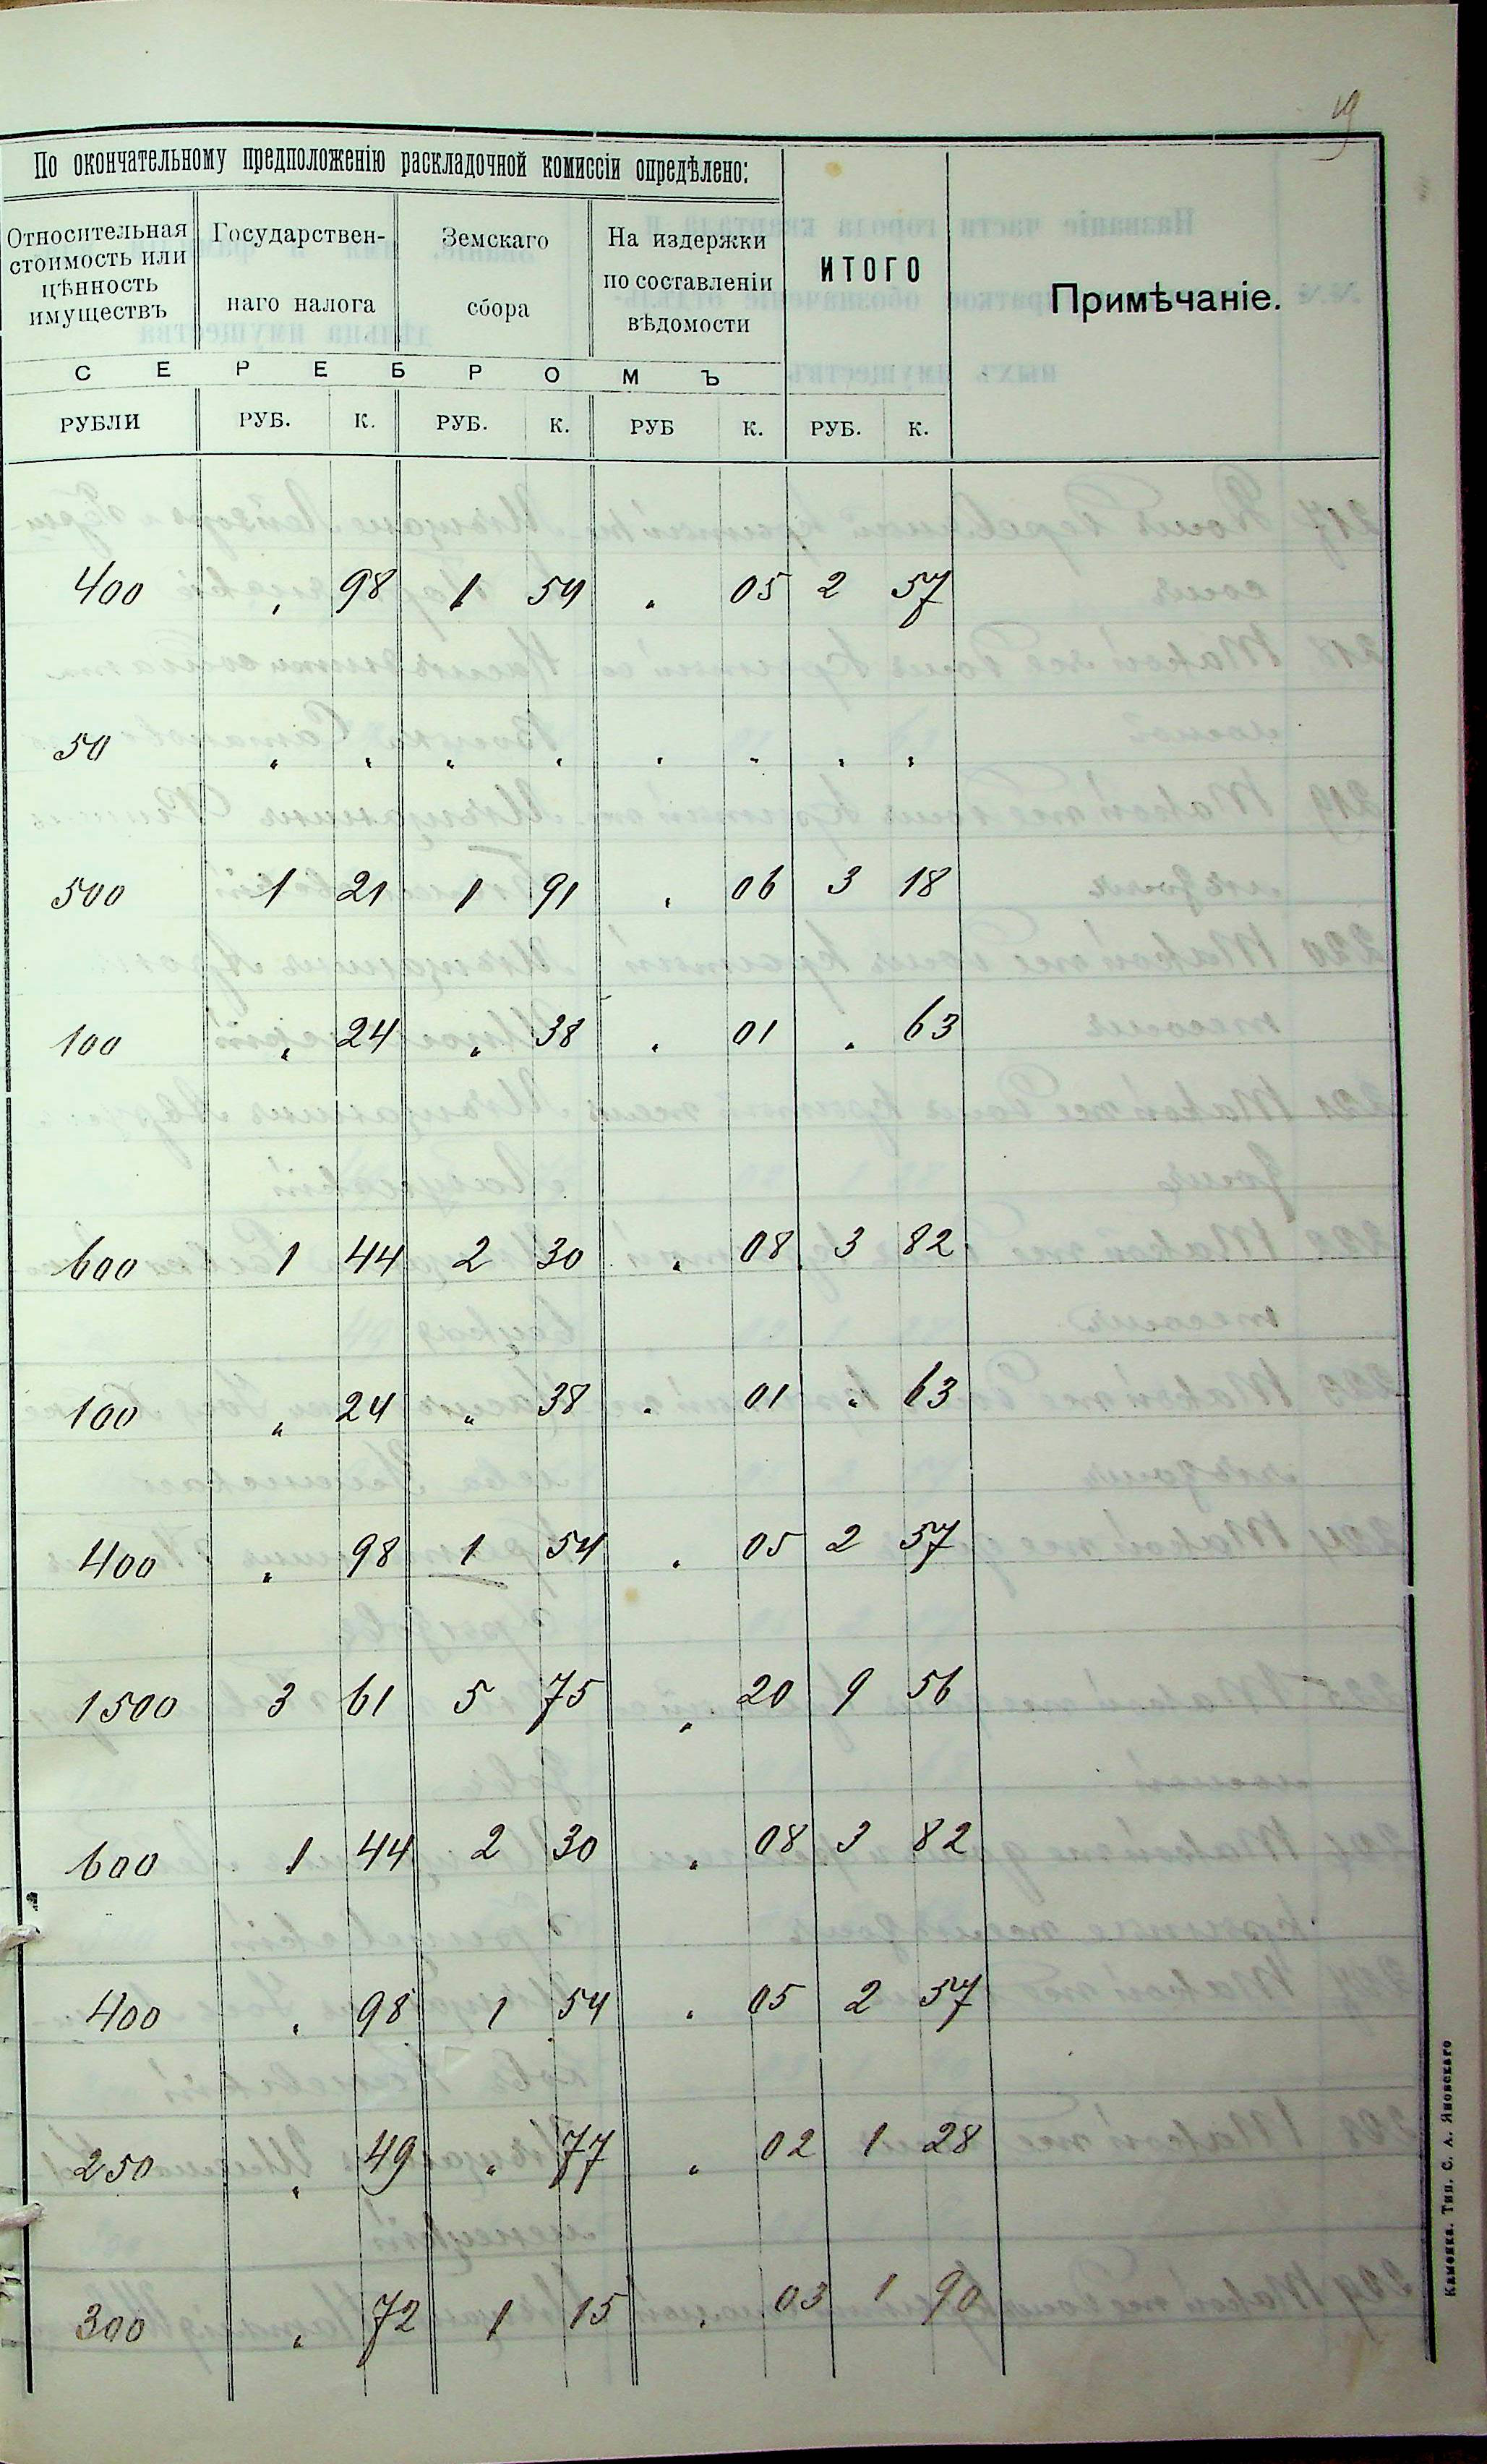 19
По окончательному предположенію раскладочной комиссіи опредѣлено:
Относительная стоимость или цѣнность имуществъ
Государствен-наго налога
Земскаго сбора
На издержки по составленіи вѣдомости
ИТОГО
Примѣчаніе.
С Е Р Е Б Р О М Ъ
РУБЛИ РУБ. К. РУБ. К. РУБ К. РУБ. К.
400 „ 98 1 54 „ 05 2 57
50 „ „ „ „ „ „ „ „
500 1 21 1 91 „ 06 3 18
100 „ 24 „ 38 „ 01 „ 63
600 1 44 2 30 „ 08 3 82
100 „ 24 „ 38 „ 01 „ 63
400 „ 98 1 54 „ 05 2 57
1500 3 61 5 75 „ 20 9 56
600 1 44 2 30 „ 08 3 82
400 „ 98 1 54 „ 05 2 57
250 „ 49 „ 77 „ 02 1 28
300 „ 72 1 15 „ 03 1 90
Каменка. Тип. С. А. Яновскаго